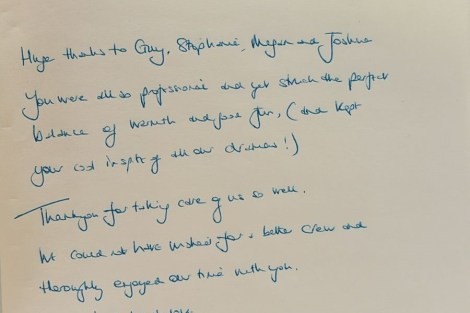 Huge thanks to Guy, Stephanie, Megan and Joshua
You were all so professional and yet struck the perfect
balance of warmth and fun, (and kept
your cool inspite of all our dramas!)
Thankyou for taking care of us so well.
We could not have wished for a better crew and
thoroughly enjoyed our time with you.